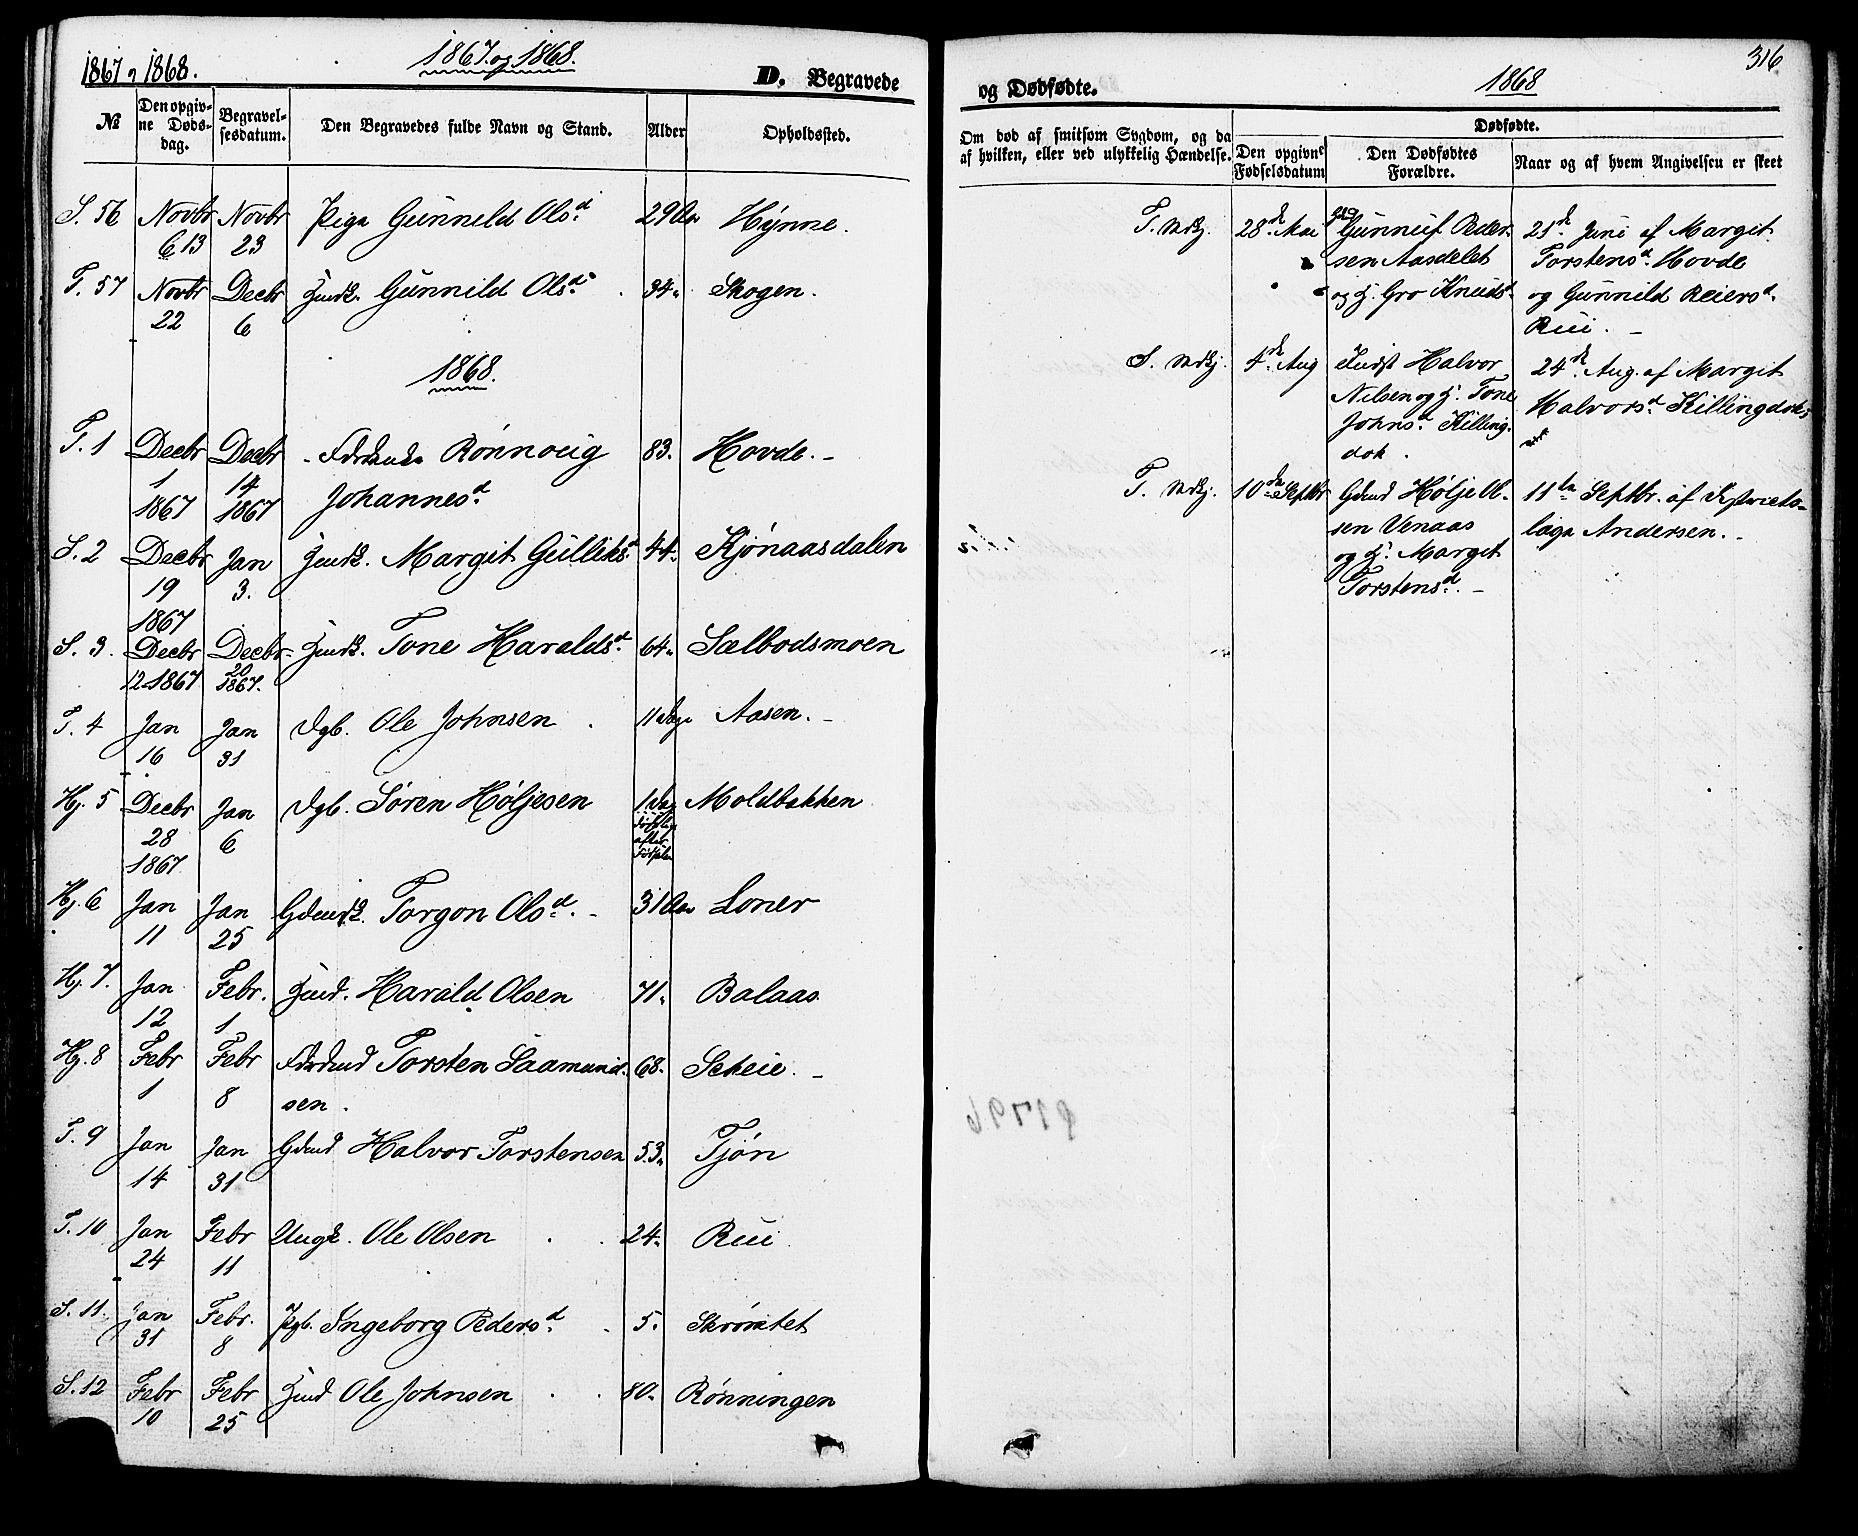 1867 og 1868.
1867 og 1868.
D. Begravede
№
Den opgivne Dødsdag.
Begravelsesdatum.
Den Begravedes fulde Navn og Stand.
Alder
Opholdssted.
S. 56 Novbr 13 Novbr 23 Pige Gunnild Olsd. 29 Aar Hynne.
T. 57 Novbr 22 Decbr 6 Gunnild Olsd. 34 Skogen.
1868.
T. 1 Decbr 1 1867 Decbr 14 1867 Rønnoug Johannesd. 83. Hovde.
S. 2 Decbr 19 1867 Jan 3. Margit Gulliksd. 44 Kjønaasdalen
S. 3. Decbr 12 1867 Decbr 20 1867. Tone Haraldsd. 64 Sælbodsmoen
T. 4 Jan 16 Jan 31 Dgb. Ole Johnsen 11 Dage Aasen.
Hj. 5 Decbr 28 1867 Jan 6 Dgb. Søren Høljesen 1 Dag Moldbakken
Hj. 6 Jan 11 Jan 25 Torgon Olsd. 31 Aar Loner
Hj. 7. Jan 12 Febr. 1 Harald Olsen 71 Balaas
Hj. 8 Febr 1 Febr 8 Torsten Saamundsen. 68. Scheie.
T. 9 Jan 14 Jan 31 Gdmd Halvor Torstensen 53 Tjøn
T. 10 Jan 24 Febr 11 Ungk. Ole Olsen 24 Rui
S. 11. Jan 31 Febr. 8 Pgb. Ingeborg Pedersd. 5.
S. 12 Febr 10 Febr 25 Ole Johnsen 80 Rønningen
316
og Dødfødte.
1868
Om død af smitsom Sygdom, og da af hvilken, eller ved ulykkelig Hændelse.
Dødfødte.
Den opgivne Fødselsdatum
Den Dødfødtes Forældre.
Naar og af hvem Angivelsen er skeet
T. 28de Mai Gunnuf Pedersen Aasdelet og H. Gro Knudsd. 21de Juni af Margit Torstensd. Hovde og Gunnild Reiersd. Rui.
S. 4de Aug Indst Halvor Nilsen og H. Tone Johnsd. Killingdok. 24de Aug. af Margit Halvorsd. Killingdok
T. 10de Septbr Gdmd Hølje Olsen Venaas og H. Margit Torstensd. 11te Septbr. af Distriktslæge Andersen.